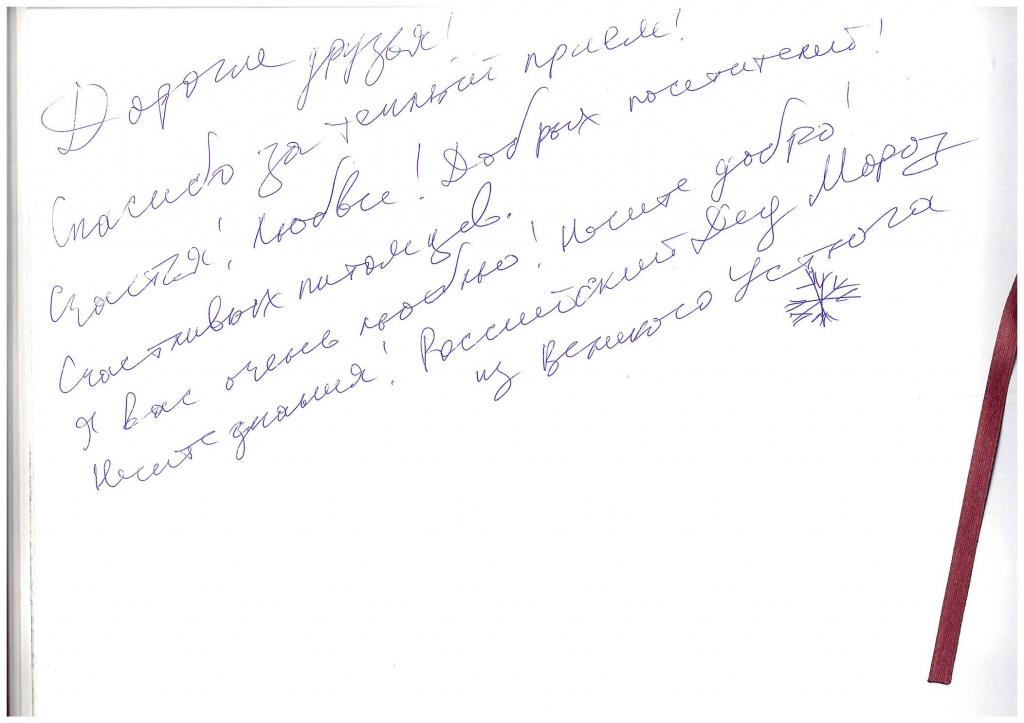 Дорогие друзья!
Спасибо за теплый прием!
Счастья! Любви! Добрых посетителей!
Счастливых питомцев.
Я вас очень люблю! Несите добро!
Несите знания! Российский Дед Мороз
из Великого Устюга